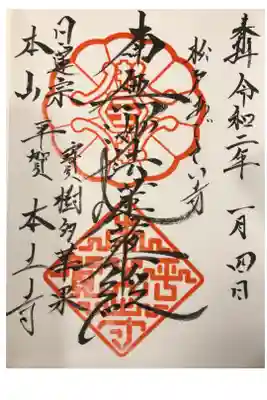 奉拝 令和二年 一月四日
松戸あぢさい寺
南無妙法蓮華経
寳樹多華菓
日蓮宗
本山 平賀 本土寺